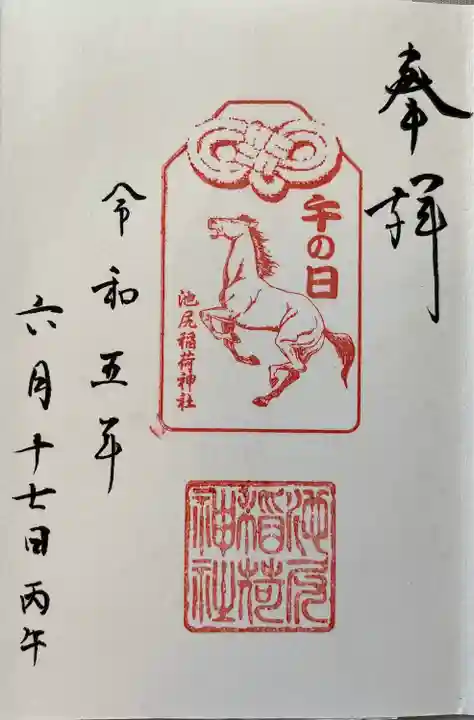 奉拝
午の日
池尻稲荷神社
池尻稲荷神社
令和五年
六月十七日丙午